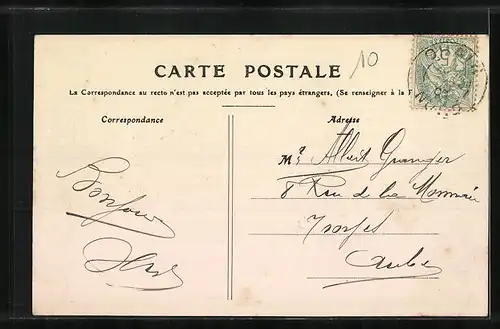 10
CARTE POSTALE
La Correspondance au recto n'est pas acceptée par tous les pays étrangers, (Se renseigner à la
Correspondance
Adresse
Mr Albert Granger
8 Rue de la Monnaie
Troyes
Aube
Bonjour